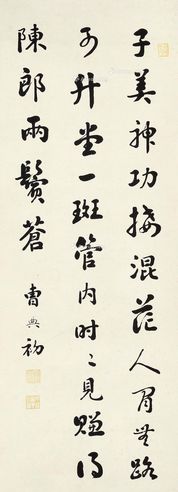 子美神功接混茫人間無路
可升堂一斑管内时〻見賺得
陳郎兩鬢蒼
曹典初